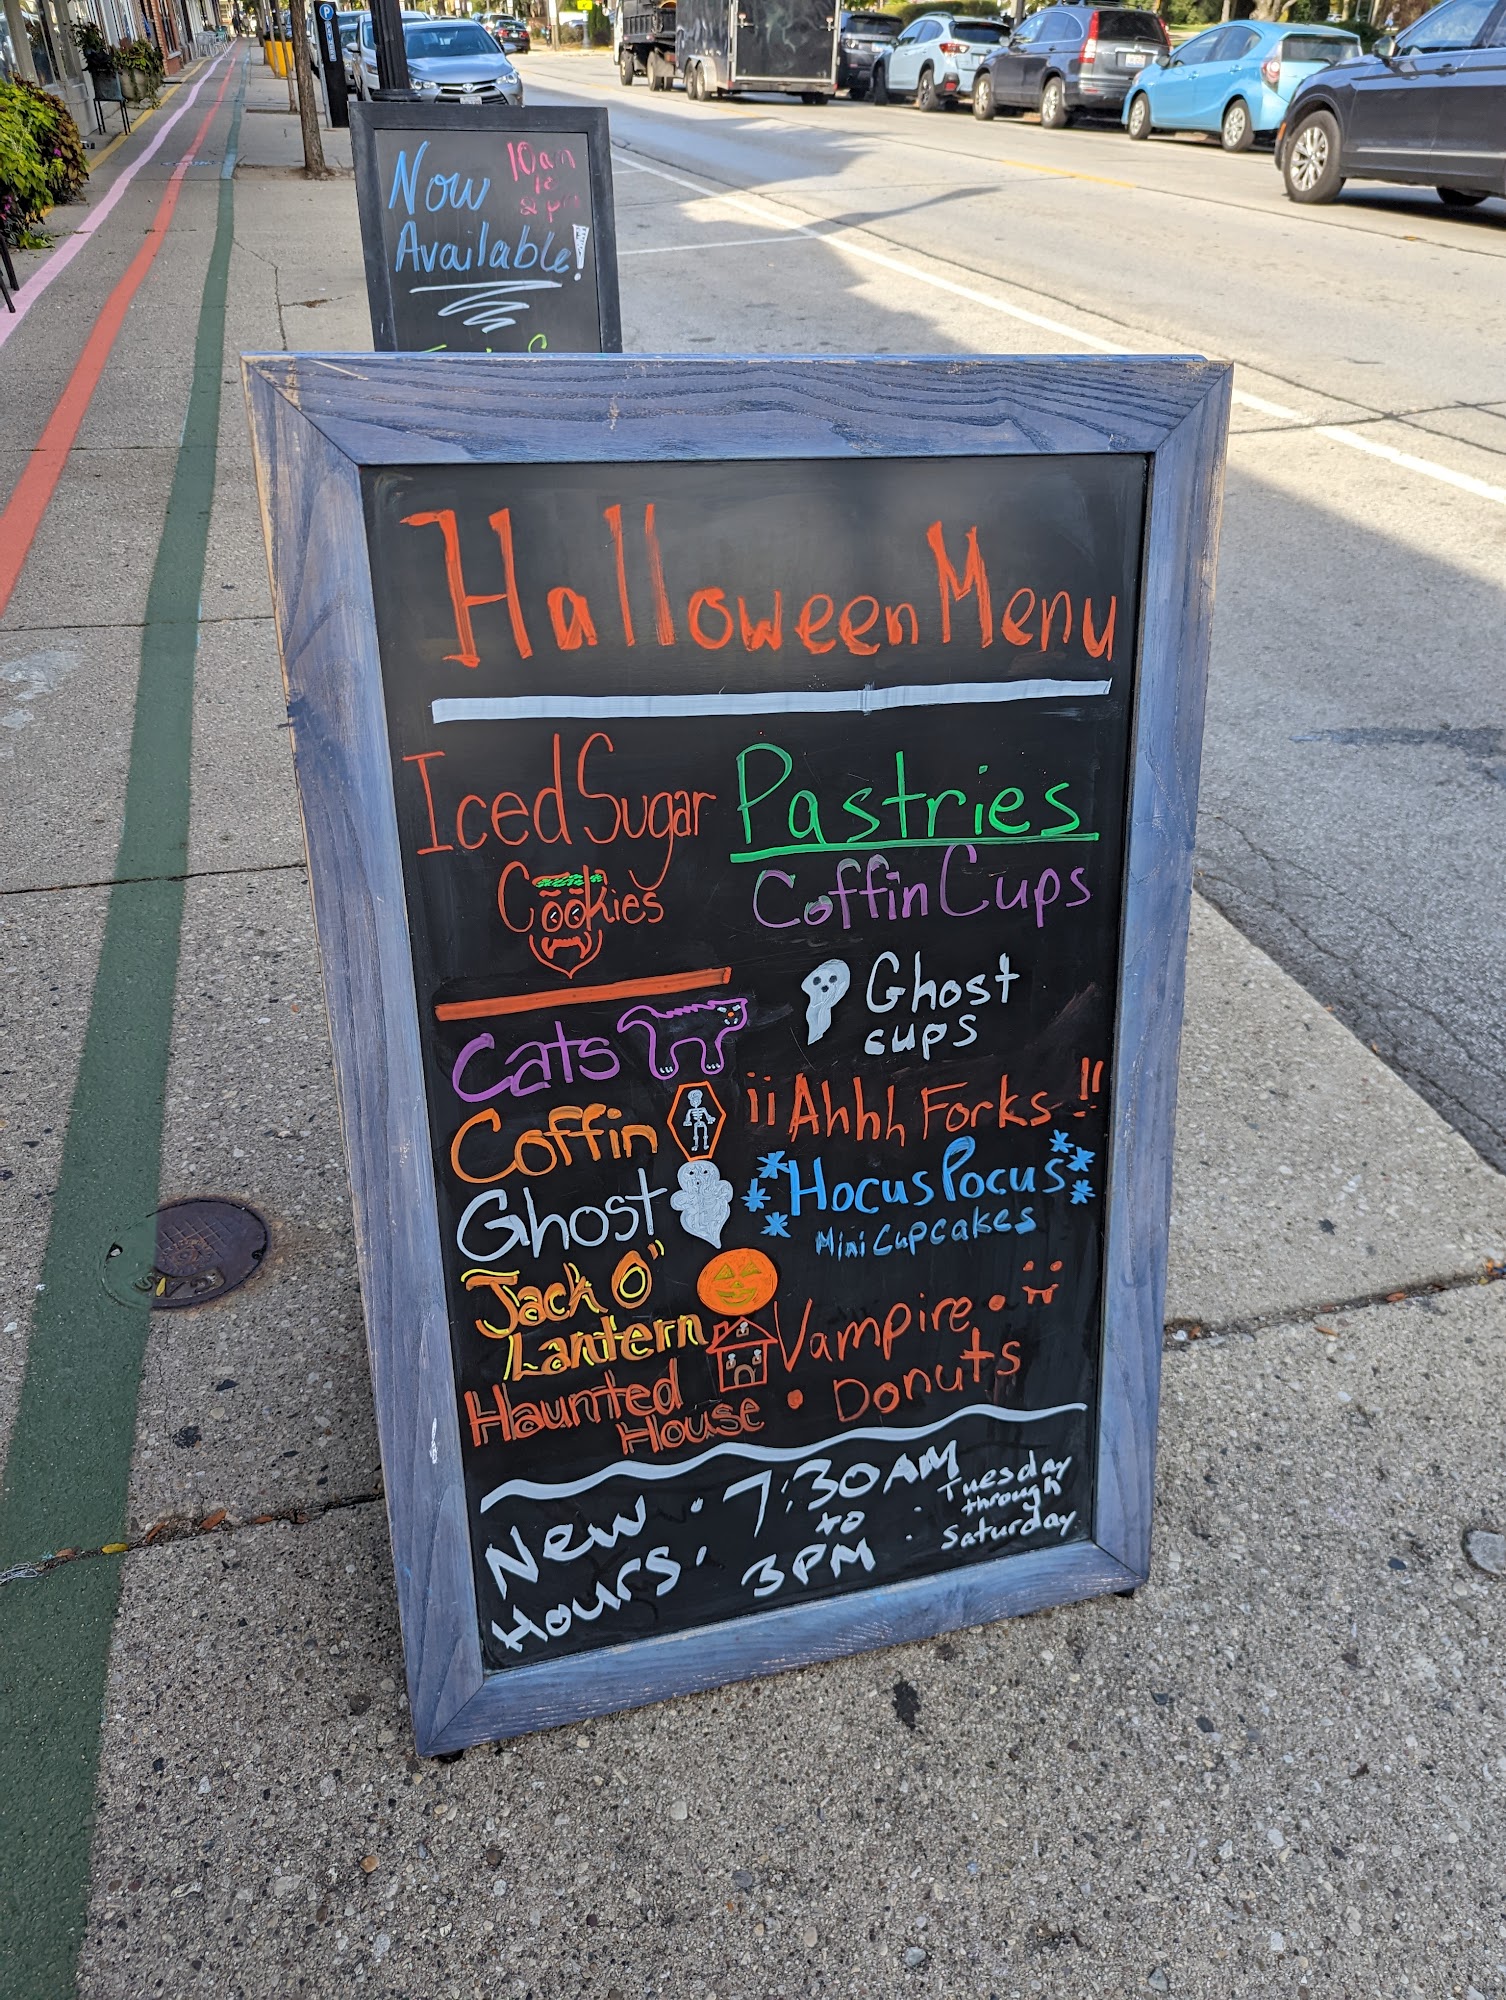 Now
Available!
10am
to
2 pm
Halloween Menu
Iced Sugar
Cookies
Cats
Coffin
Ghost
Jack O"
Lantern
Haunted
House
Pastries
Coffin Cups
Ghost
cups
¡¡Ahhh Forks!!
Hocus Pocus
Mini Cupcakes
Vampire
Donuts
New
Hours
7:30 AM
to
3PM
Tuesday
through
Saturday